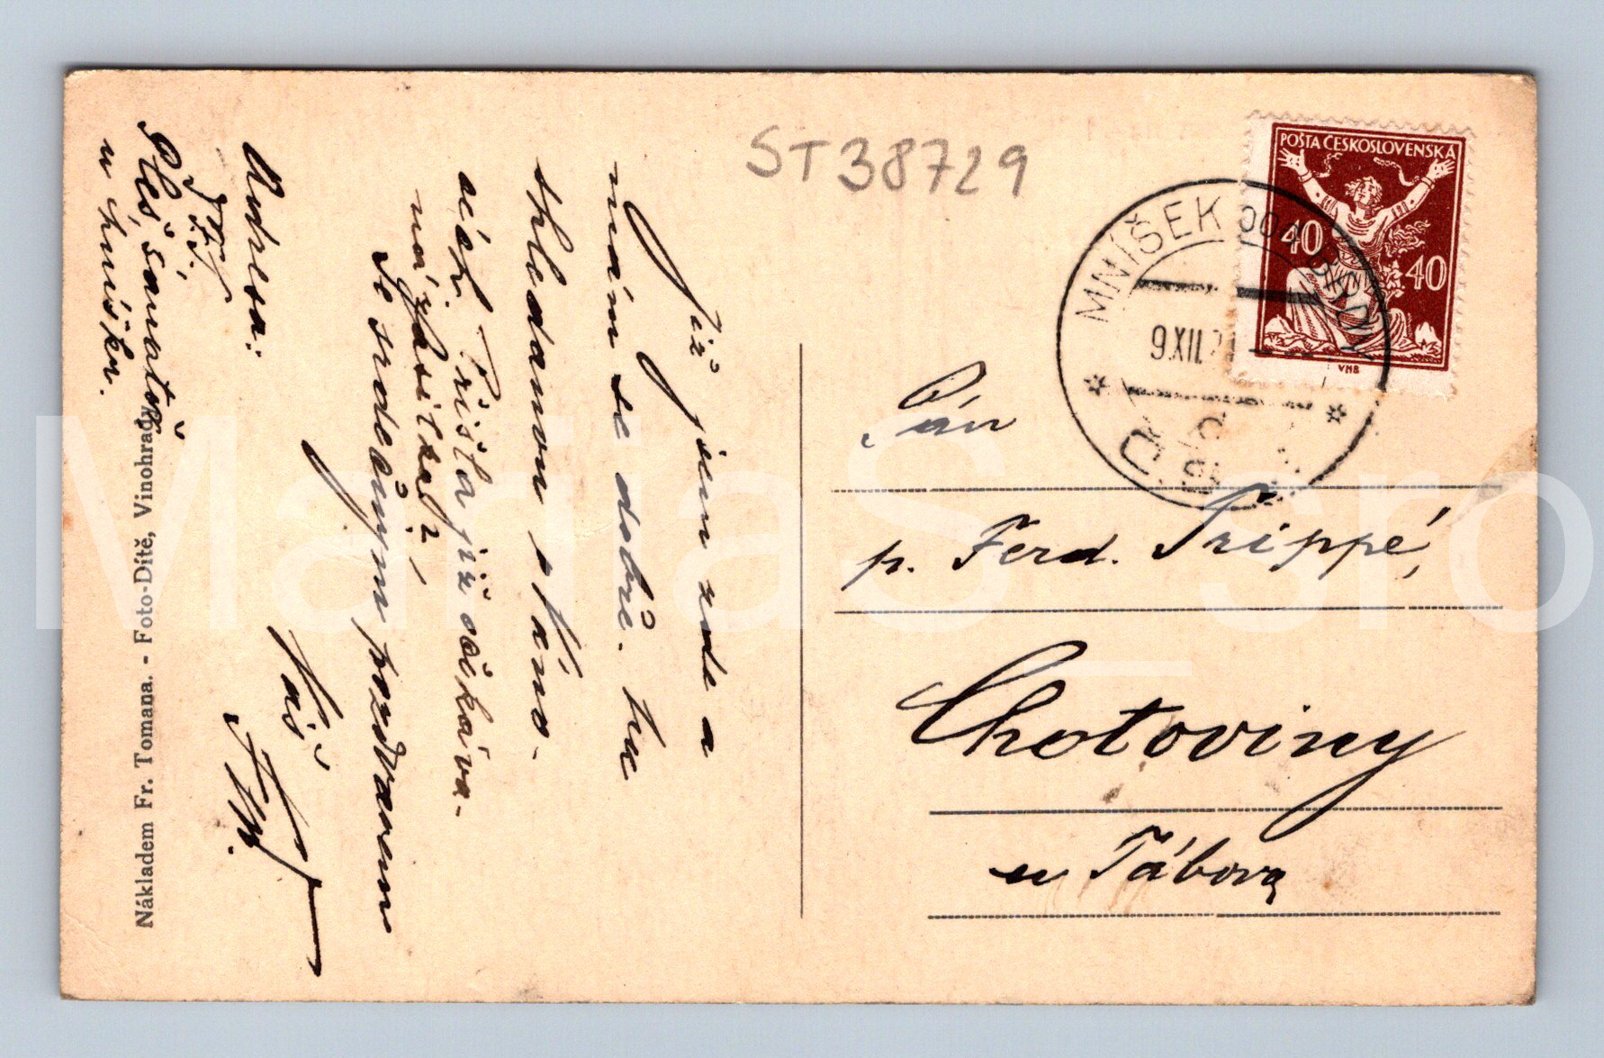 ST38729
POŠTA ČESKOSLOVENSKÁ
40
40
VHB
MNÍŠEK POD BRDY
9.XII.2
Pán
p. Ferd. Trippé,
Chotoviny
u Tábora
Již jsem zde a
mám se dobře. Na
shledanou o Váno-
cích. Přišla již očekáva-
ná
Se srdečným pozdravem
Váš
Adresa:
u Mníšku.
Nákladem Fr. Tomana. - Foto-Dítě, Vinohrady
MartaS_sro